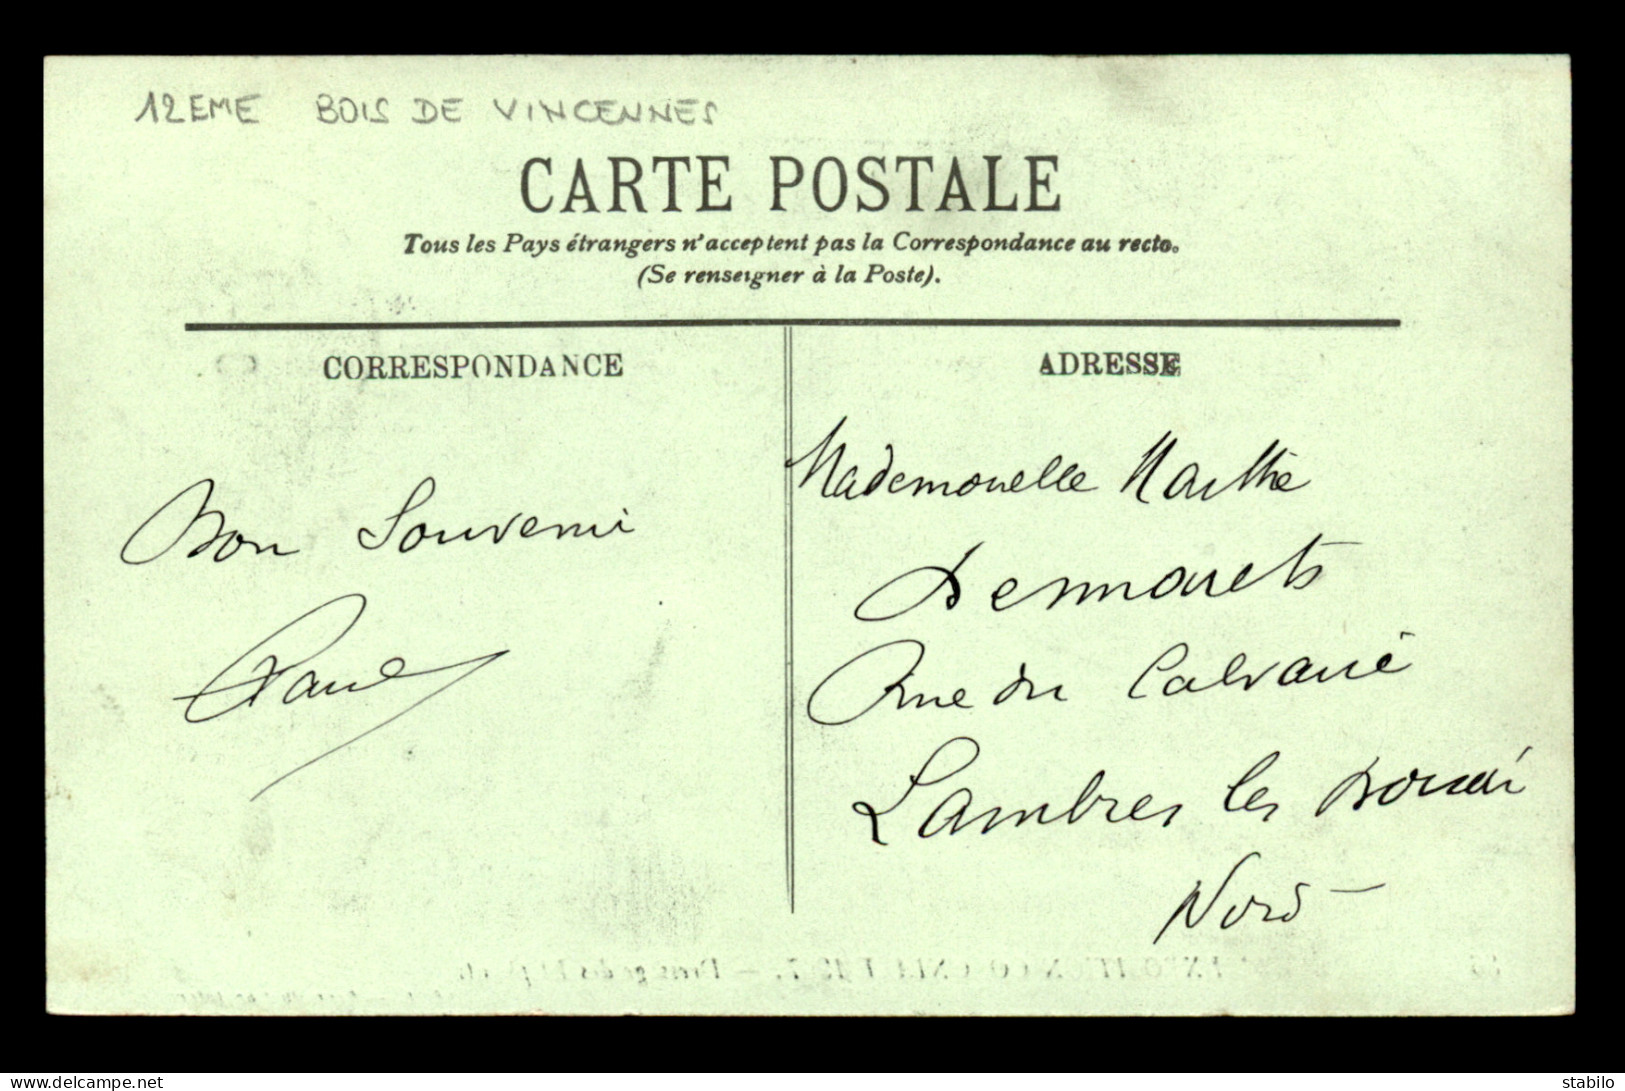 12EME BOIS DE VINCENNES
CARTE POSTALE
Tous les Pays étrangers n'acceptent pas la Correspondance au recto.
(Se renseigner à la Poste).
CORRESPONDANCE
ADRESSE
Bon Souvenir
Paul
Mademoiselle Marthe
Desmarets
Rue du Calvaire
Lambres les Douai
Nord
delcampe.net
stabilo